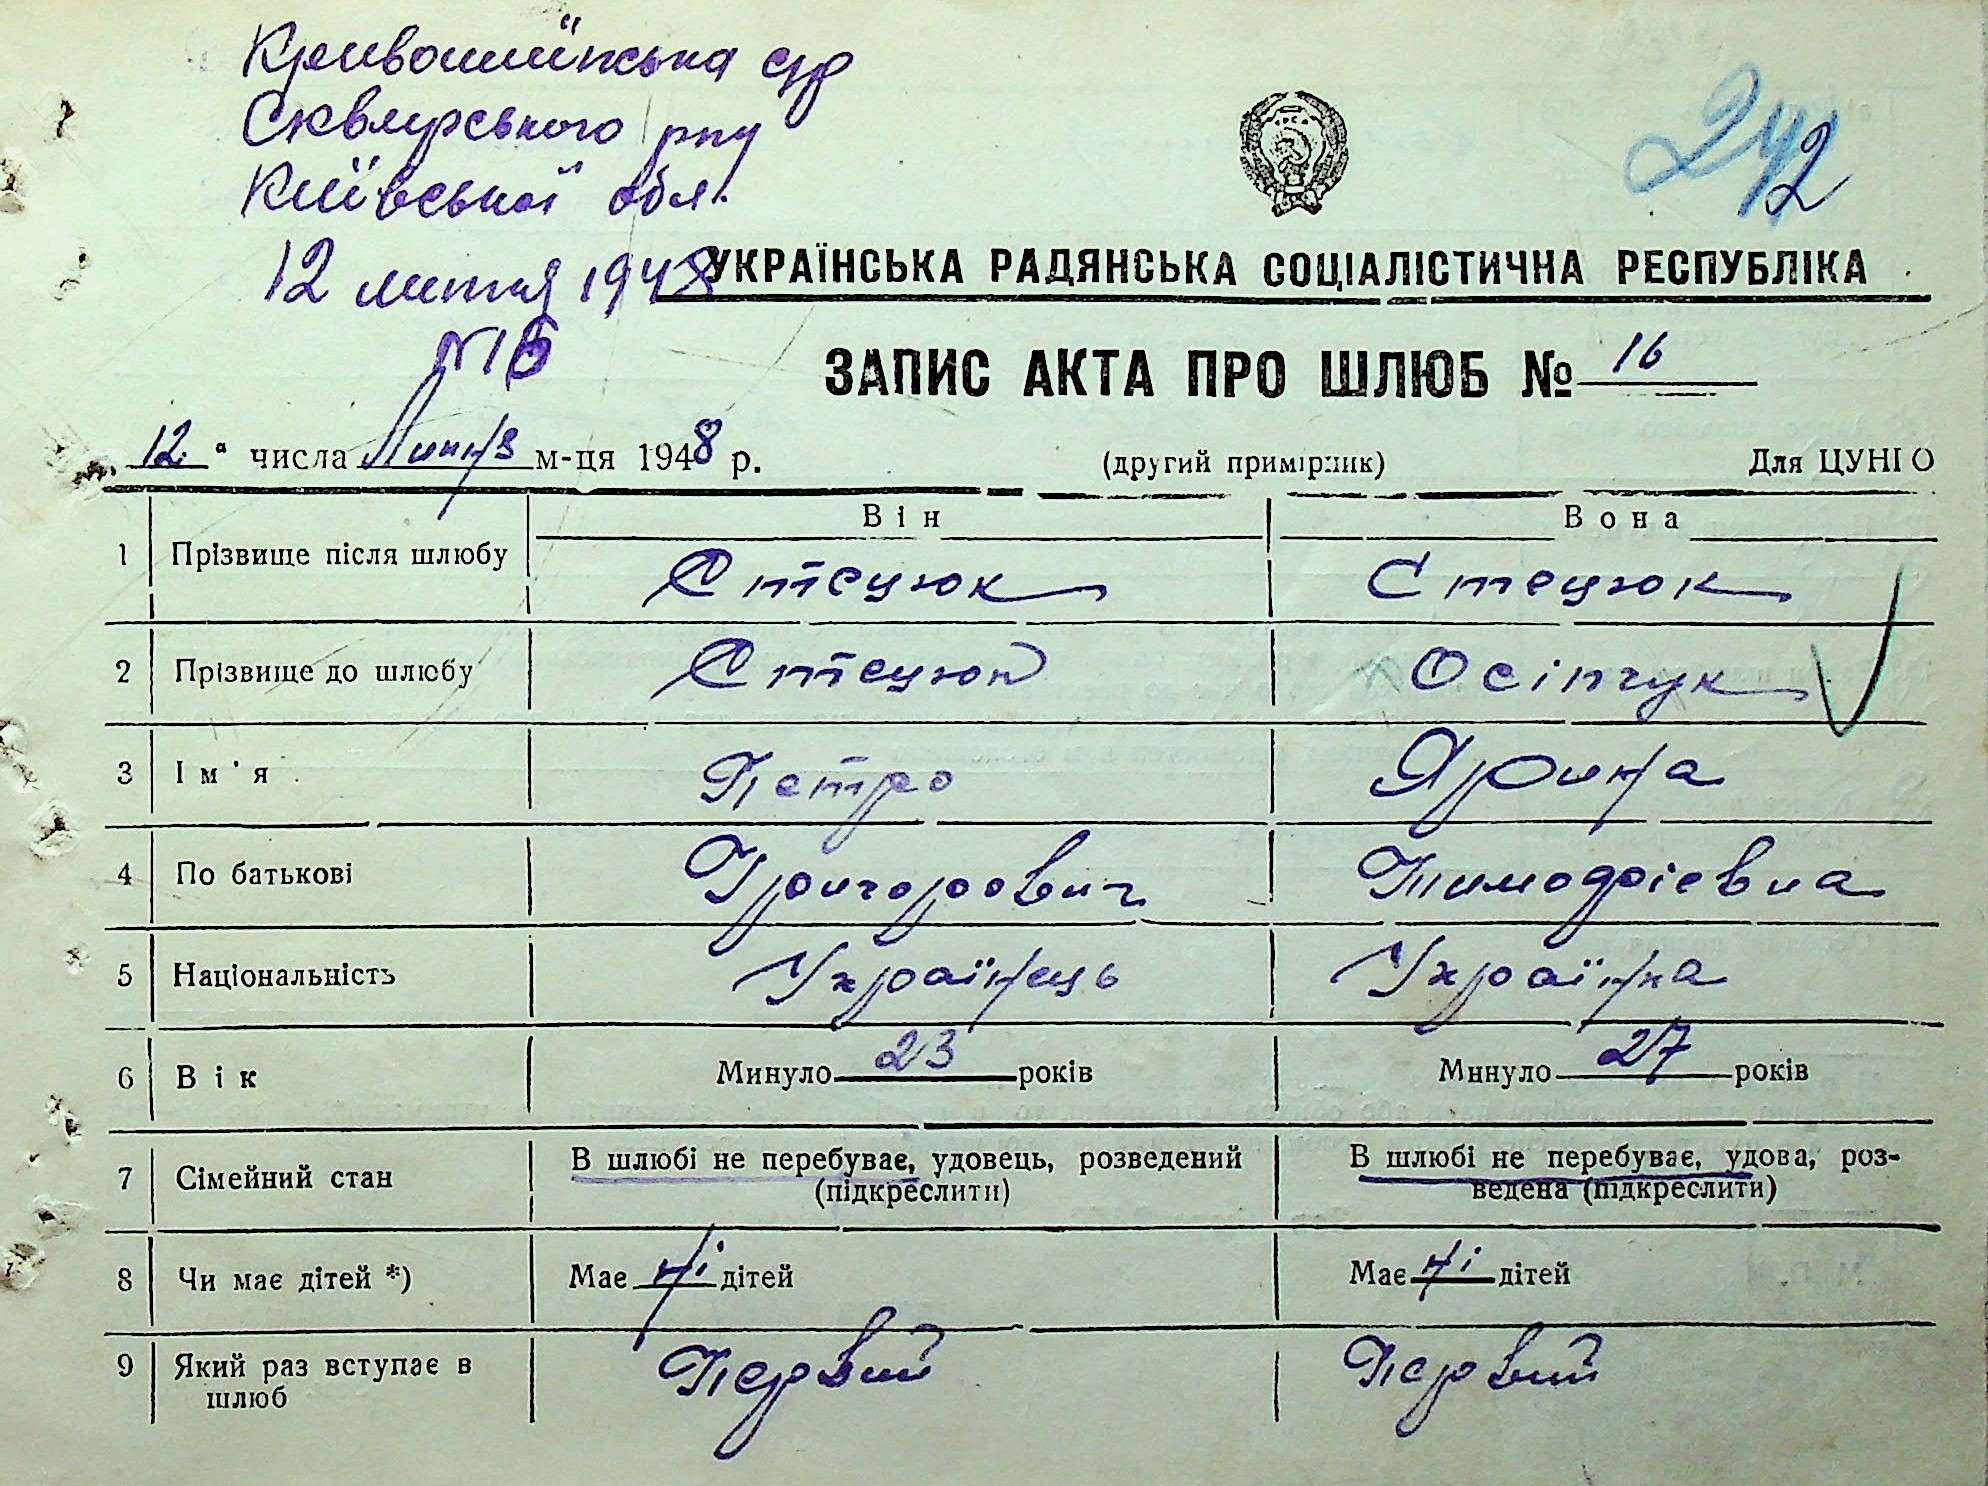 Кривошиїнська с/р
Сквирського р-ну
Київської обл.
12 липня 1948
№16
242
УКРАЇНСЬКА РАДЯНСЬКА СОЦІАЛІСТИЧНА РЕСПУБЛІКА
ЗАПИС АКТА ПРО ШЛЮБ № 16
12 " числа Липня м-ця 1948 р. (другий примірник) Для ЦУНГО
Він Вона
1 Прізвище після шлюбу Стецюк Стецюк
2 Прізвище до шлюбу Стецюк Осіпчук
3 Ім'я Петро Ярина
4 По батькові Григорович Тимофієвна
5 Національність Українець Українка
6 Вік Минуло 23 років Минуло 27 років
7 Сімейний стан В шлюбі не перебуває, удовець, розведений В шлюбі не перебуває, удова, роз-
(підкреслити) ведена (підкреслити)
8 Чи має дітей *) Має ні дітей Має ні дітей
9 Який раз вступає в Первий Первий
шлюб